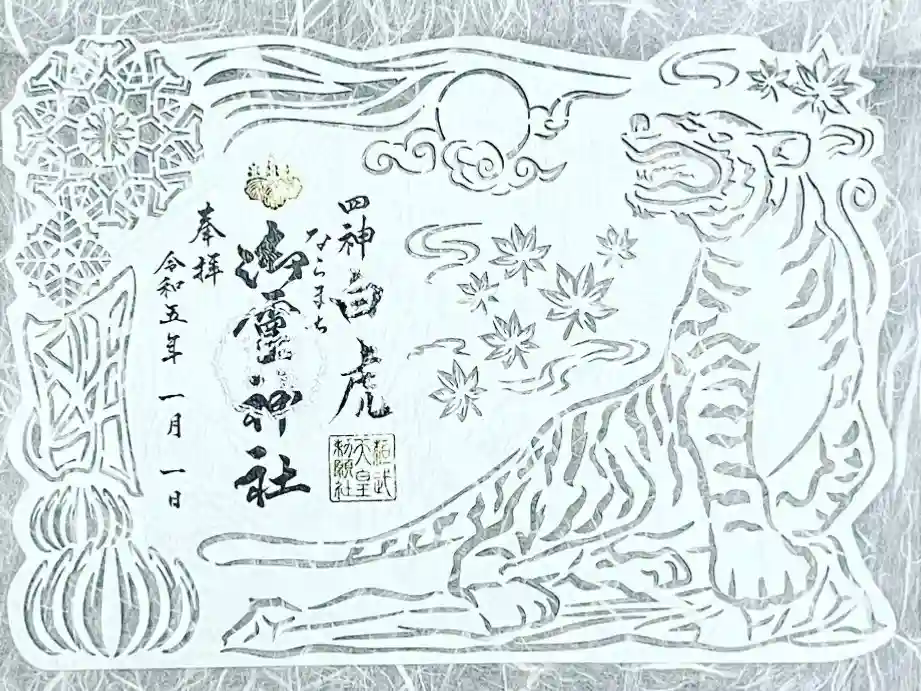 四神 白虎
桓武
天皇
勅願社
ならまち
御霊神社
奉拝
令和五年 一月 一日